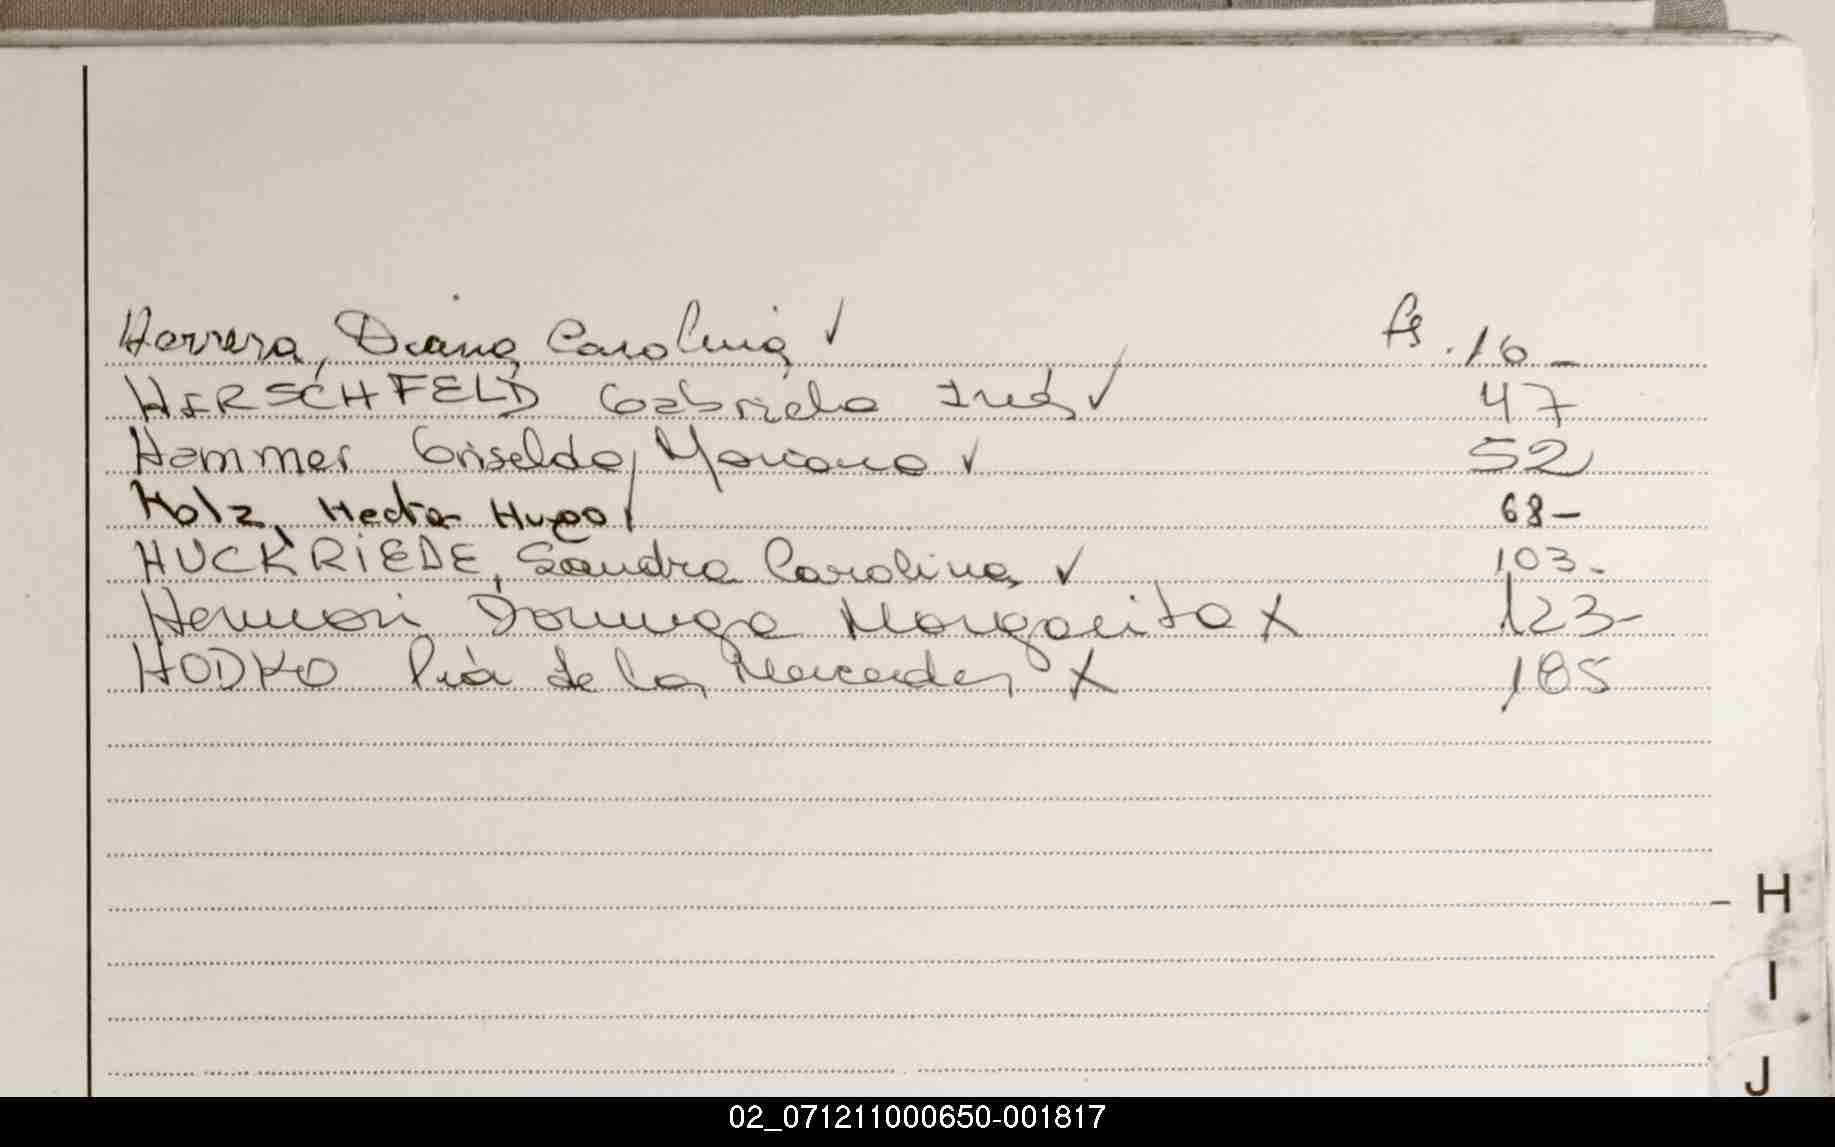 Herrera, Diana Carolina ✓ fs. 16 -
HIRSCHFELD Gabriela Inés ✓ 47
Hammer Griselda Mariana ✓ 52
Holz, Hector Hugo ✓ 68 -
HUCKRIEDE, Sandra Carolina ✓ 103 -
Domenga Margarita X 123 -
HODKO Pía de las Mercedes X 185
H
I
J
02_071211000650-001817